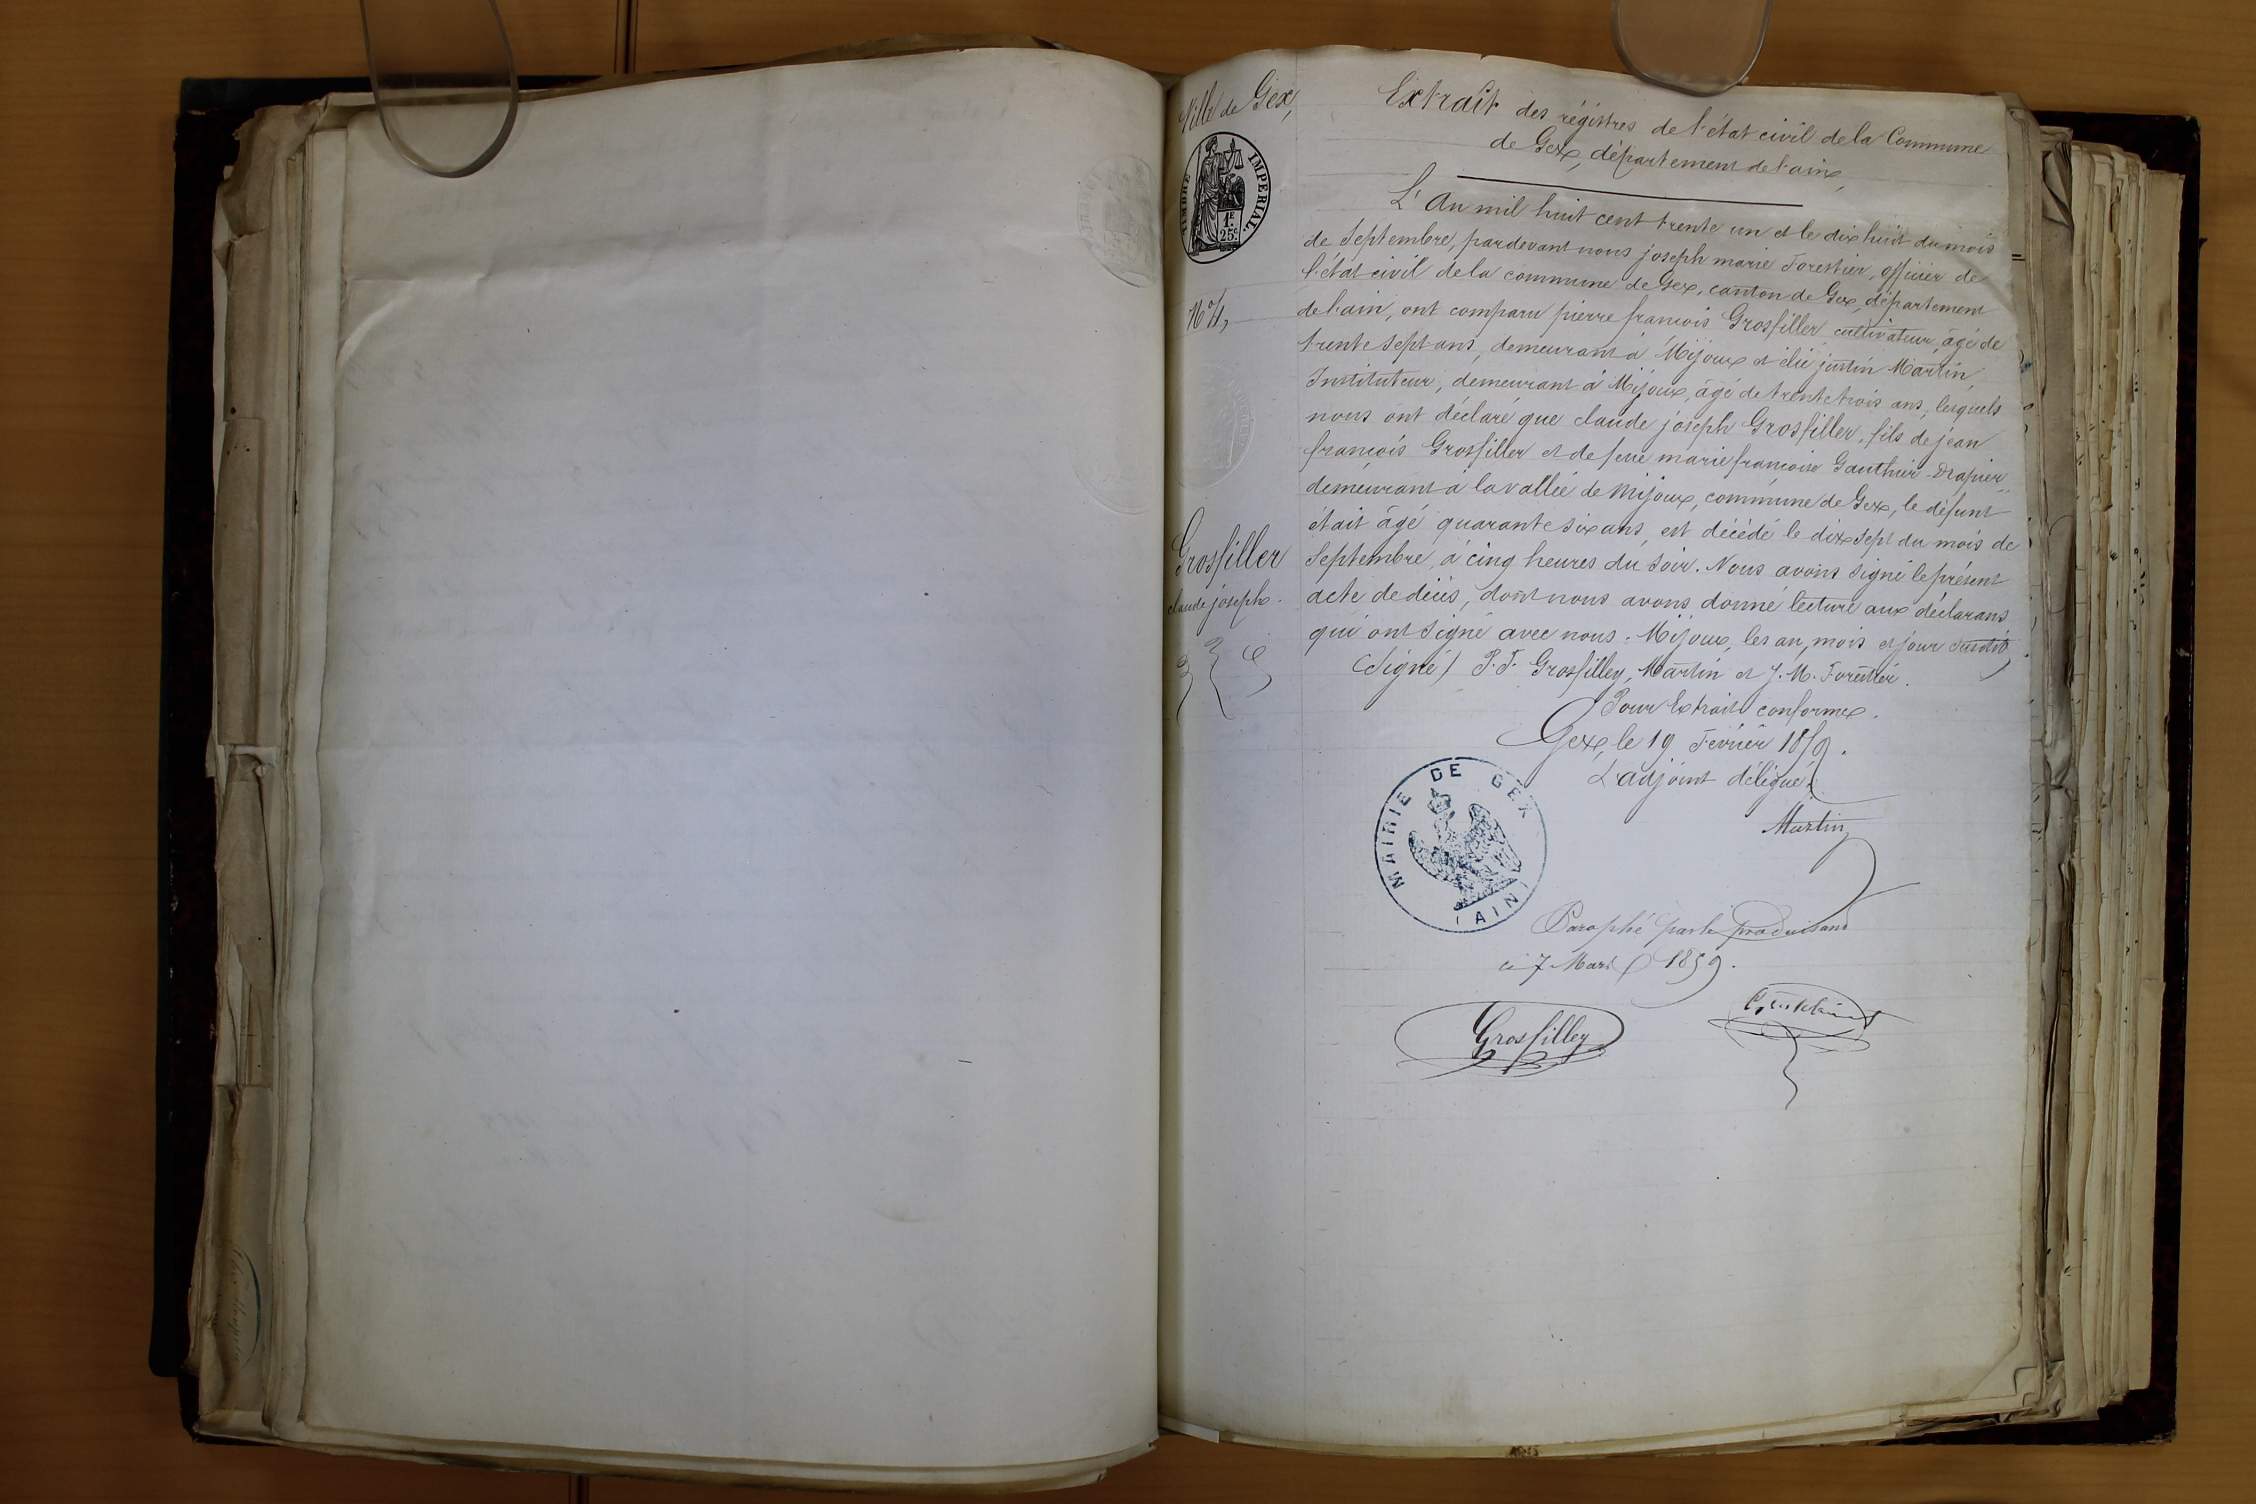 Ville de Gex,
TIMBRE IMPERIAL.
1F
25c
Grosfiller
claude joseph.
Extrait des régistres de l'état civil de la Commune
de Gex, département de l'ain,
L'An mil huit cent trente un et le dix huit du mois
de Septembre, pardevant nous joseph marie Forestier, officier de
l'état civil de la commune de Gex, canton de Gex, département
de l'ain, ont comparu pierre françois Grosfiller cultivateur, âgé de
trente sept ans, demeurant à Mijoux et élie justin Martin,
Instituteur, demeurant à Mijoux, âgé de trente trois ans, lesquels
nous ont déclaré que claude joseph Grosfiller, fils de jean
françois Grosfiller et de feue marie françoise Gauthier-Drapier
demeurant à la vallée de Mijoux, commune de Gex, le défunt
était âgé quarante six ans, est décédé le dix sept du mois de
Septembre, à cinq heures du soir. Nous avons signé le présent
acte de décès, dont nous avons donné lecture aux déclarans
qui ont signé avec nous. Mijoux, les an, mois et jour susdits,
(Signé) P. F. Grosfilley, Martin et J. M. Forestier.
Pour Extrait conforme.
Gex, le 19 Février 1859.
L'adjoint délégué,
Martin
MAIRIE DE GEX
(AIN)
Paraphé par le produisant
ce 7 Mars 1859.
Grosfilley